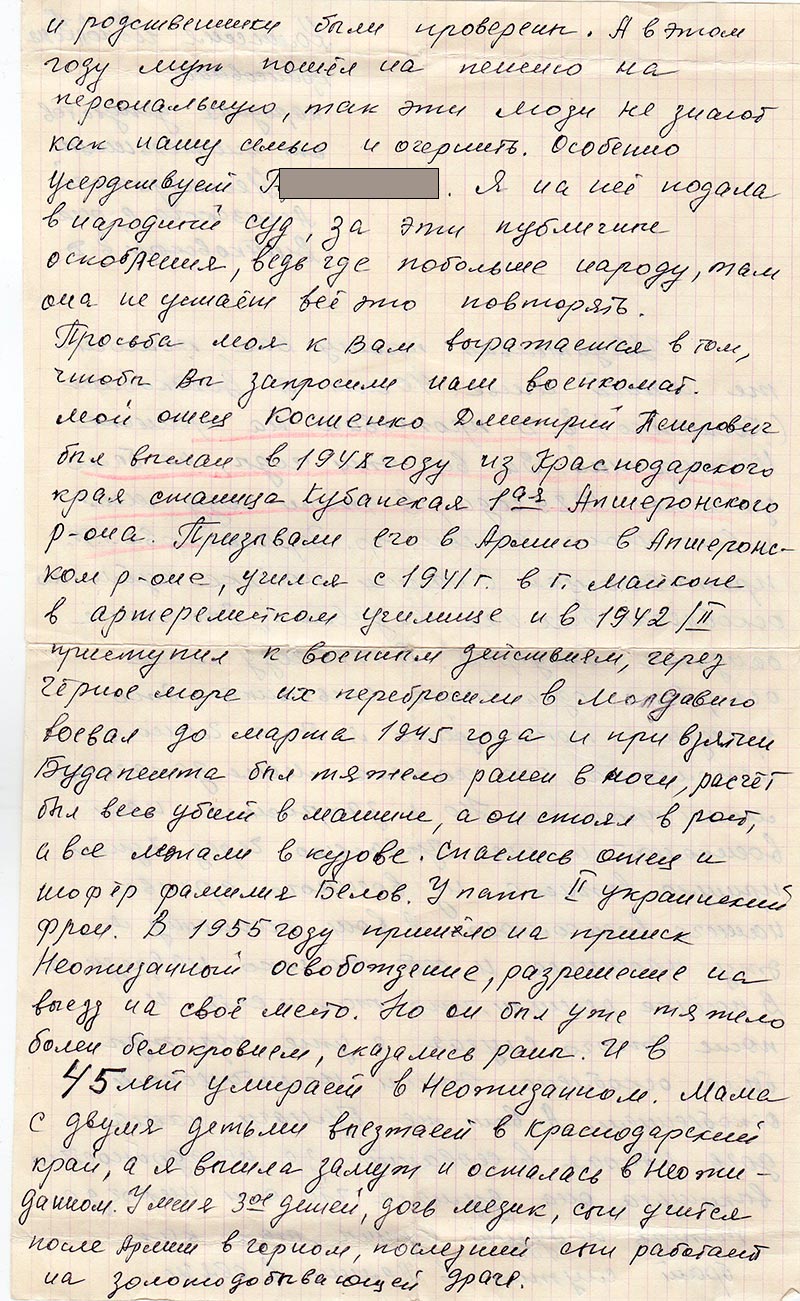 и родственники были проверены. А в этом
году муж пошёл на пенсию на
персональную, так эти люди не знают
как нашу семью и очернить. Особенно
усердствует Г . Я на неё подала
в народный суд, за эти публичные
оскобления, ведь где побольше народу, там
она не устаёт всё это повторять.
Просьба моя к Вам выражается в том,
чтобы Вы запросили наш военкомат.
Мой отец Костенко Дмитрий Петрович
был выслан в 1948 году из Краснодарского
края станица Кубанская 1ая Апшеронского
р-она. Призывали его в Армию в Апшеронс-
ком р-оне, учился с 1941 г. в г. Майкопе
в артеремистком училище и в 1942/II
приступил к военным действиям, через
Чёрное море их перебросили в Молдавию
воевал до марта 1945 года и при взятии
Будапешта был тяжело ранен в ночи, расчёт
был весь убит в машине, а он стоял в рост,
а все лежали в кузове. Спаслись отец и
шофёр фамилия Белов. У папы II украинский
фрон. В 1955 году пришло на прииск
Неожиданный освобождение, разрешение на
выезд на своё место. Но он был уже тяжело
болен белокровием, сказались раны. И в
45 лет умирает в Неожиданном. Мама
с двумя детьми выезжает в Краснодарский
край, а я вышла замуж и осталась в Неожи-
данном. У меня 3ое детей, дочь медик, сын учится
после Армии в горном, последний сын работает
на золотодобывающей драге.